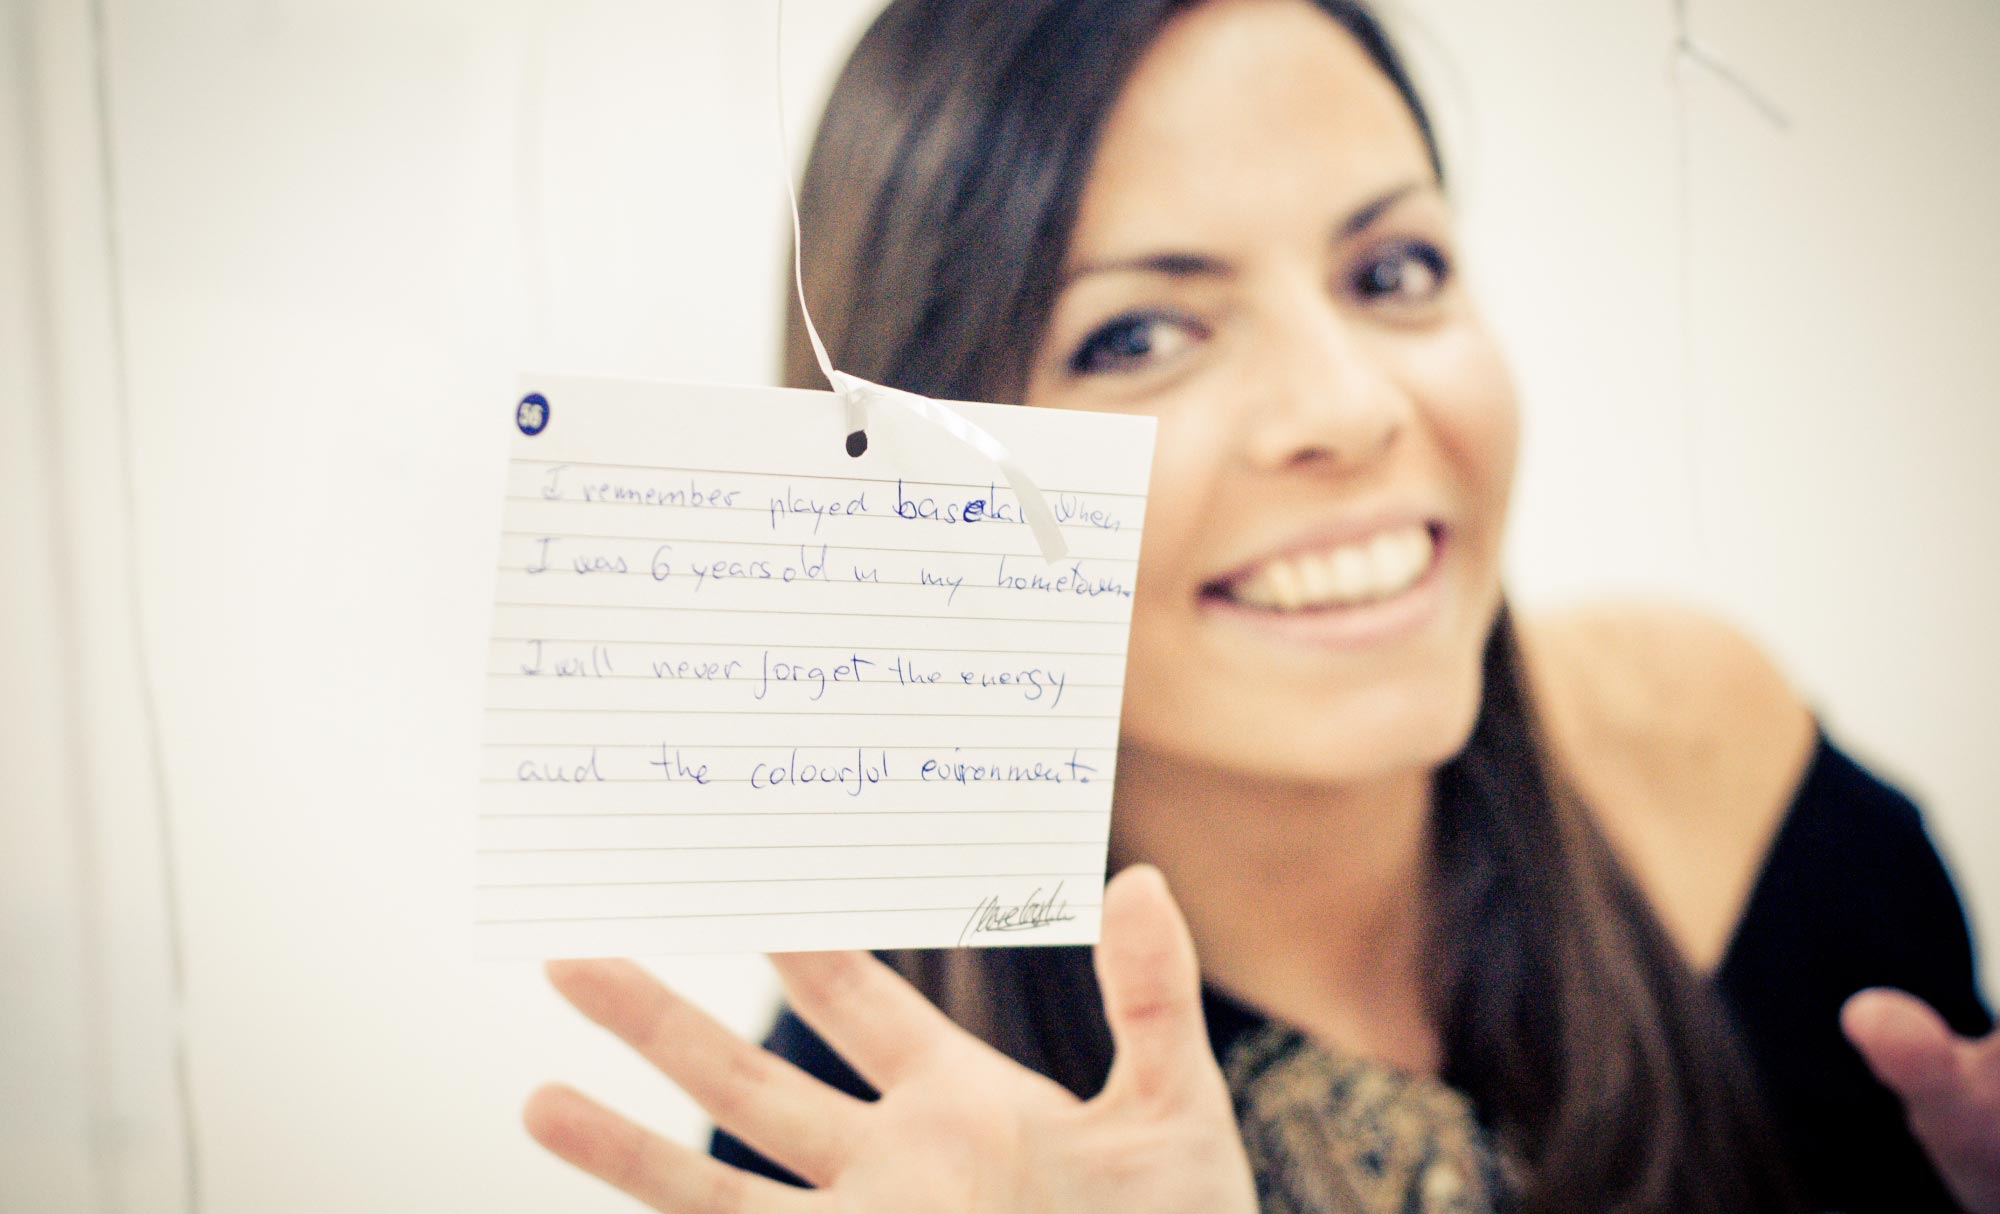 56
I remember played when
I was 6 years old in my hometown.
I will never forget the energy
and the colourful evironment.